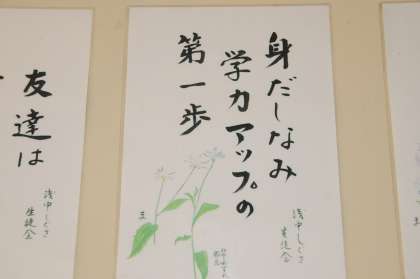 身だしなみ
学力アップの
第一歩
浅中しぐさ
生徒会
ま
友達は
浅中しぐさ
生徒会